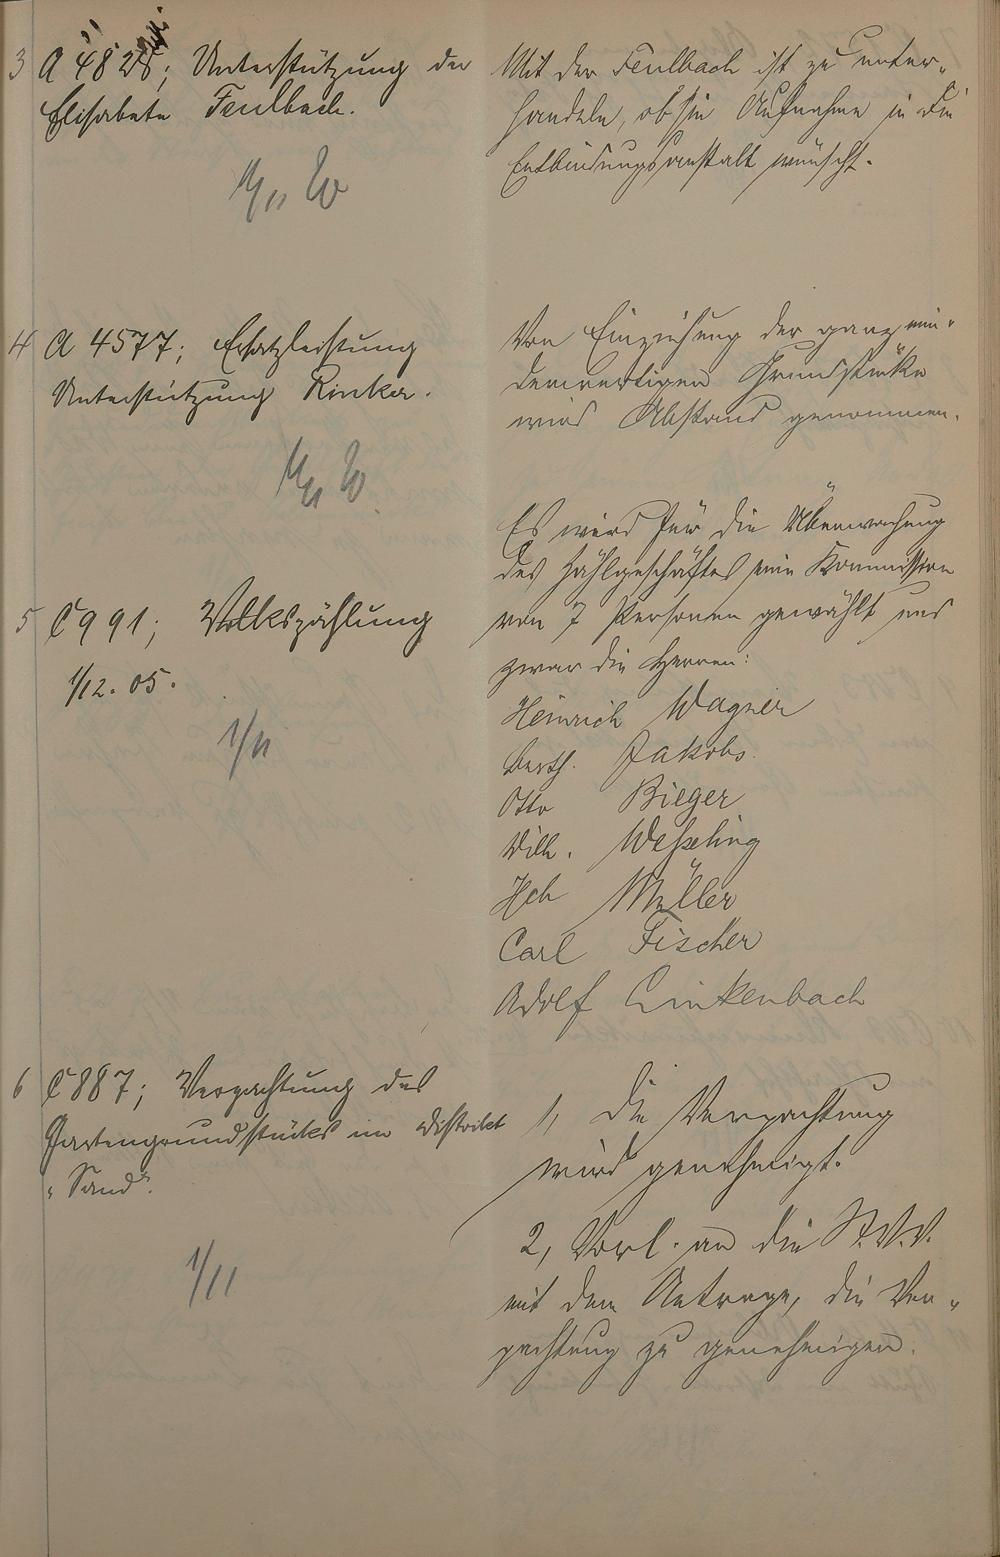 3 A 482; Unterstützung der
Elisabete Feulbach.
Mit der Feulbach ist zu unter-
handeln, ob sie Aufnahme in die
Entbindungsanstalt wünscht.
4 A 4577; Ersatzleistung
Unterstützung Rinker.
Von Einziehung der ganz min-
derwertigen Grundstücke
wird Abstand genommen.
5 C 991; Volkszählung
1/12. 05.
1/11
Es wird für die Überwachung
des Zählgeschäftes eine Kommission
von 7 Personen gewählt und
zwar die Herren:
Heinrich Wagner
Berth. Jakobs.
Otto Bieger
Wilh. Wesseling
Hch Müller
Carl Fischer
Adolf Linkenbach
6 C 887; Verpachtung des
Gartengrundstücks im Distrikt
"Sand".
1/11
1, Die Verpachtung
wird genehmigt.
2, Vorl. an die St.V.V.
mit dem Antrage, die Ver-
pachtung zu genehmigen.